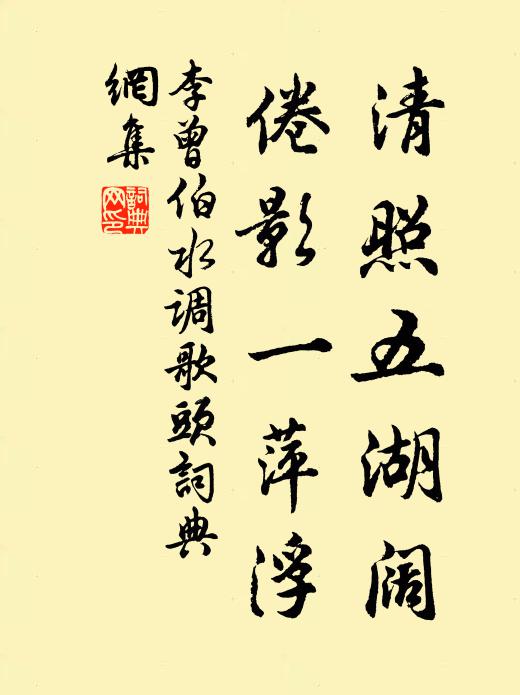 清照五湖阔
倦影一萍浮
李曾伯水调歌頭詞典
網集
詞典
网印